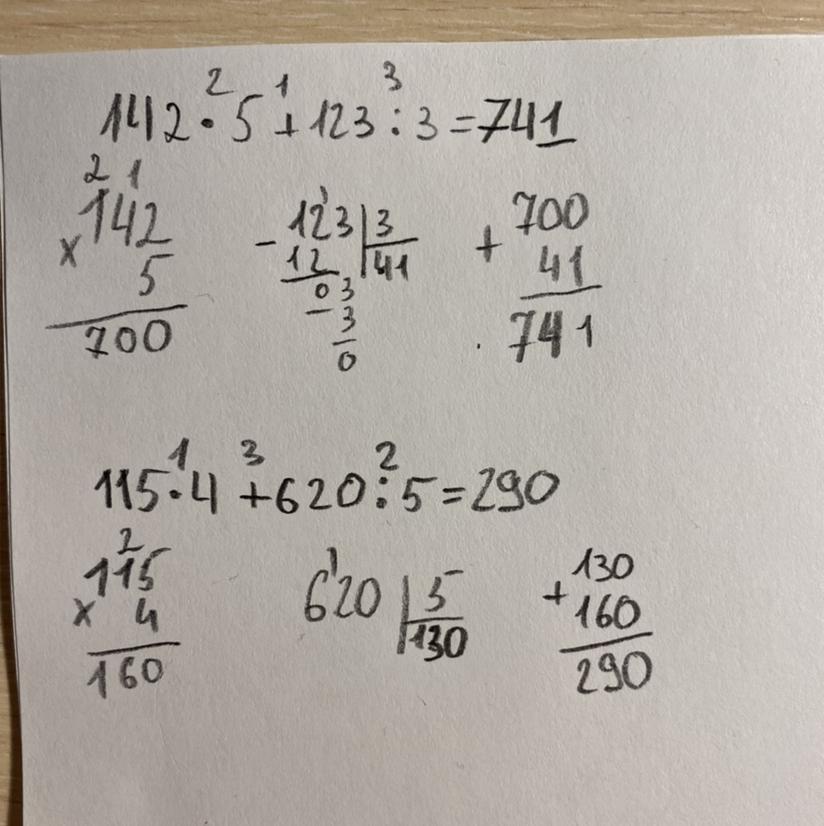 2 1 3
142·5+123:3=741
2 1
×142
5
700
-123|3
12 41
03
-3
0
+700
41
741
1 3 2
115·4+620:5=290
2
115
×4
160
1
620|5
130
+130
160
290